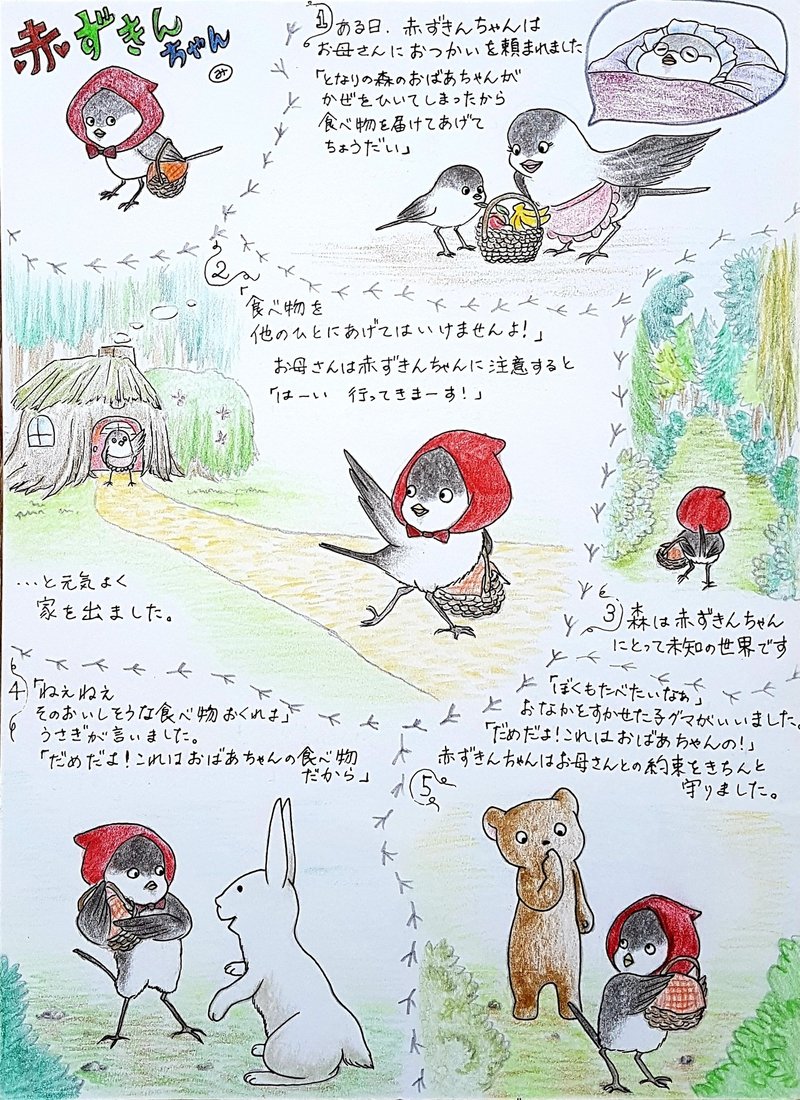 赤ずきんちゃん
み
1 ある日、赤ずきんちゃんは
お母さんにおつかいを頼まれました
「となりの森のおばあちゃんが
かぜをひいてしまったから
食べ物を届けてあげて
ちょうだい」
2
「食べ物を
他のひとにあげてはいけませんよ!」
お母さんは赤ずきんちゃんに注意すると
「はーい 行ってきまーす!」
…と元気よく
家を出ました。
3 森は赤ずきんちゃん
にとって未知の世界です
4 「ねぇねぇ
そのおいしそうな食べ物おくれよ」
うさぎが言いました。
「だめだよ!これはおばあちゃんの食べ物
だから」
5
「ぼくもたべたいなぁ」
おなかをすかせた子グマがいいました。
「だめだよ!これはおばあちゃんの!」
赤ずきんちゃんはお母さんとの約束をきちんと
守りました。